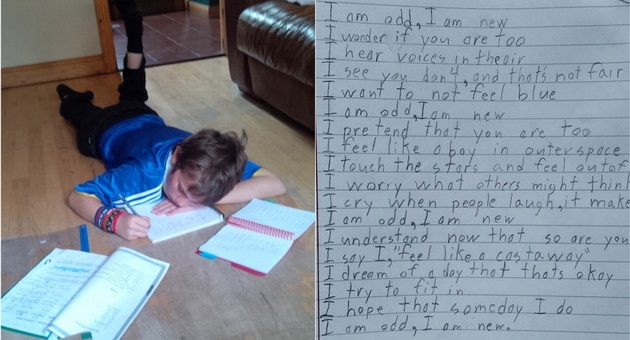 I am odd, I am new
I wonder if you are too
I hear voices in the air
I see you don't, and that's not fair
I want to not feel blue
I am odd, I am new
I pretend that you are too
I feel like a boy in outerspace
I touch the stars and feel out of
I worry what others might think
I cry when people laugh, it make
I am odd, I am new
I understand now that so are you
I say I, "feel like a castaway"
I dream of a day that thats okay
I try to fit in
I hope that someday I do
I am odd, I am new.